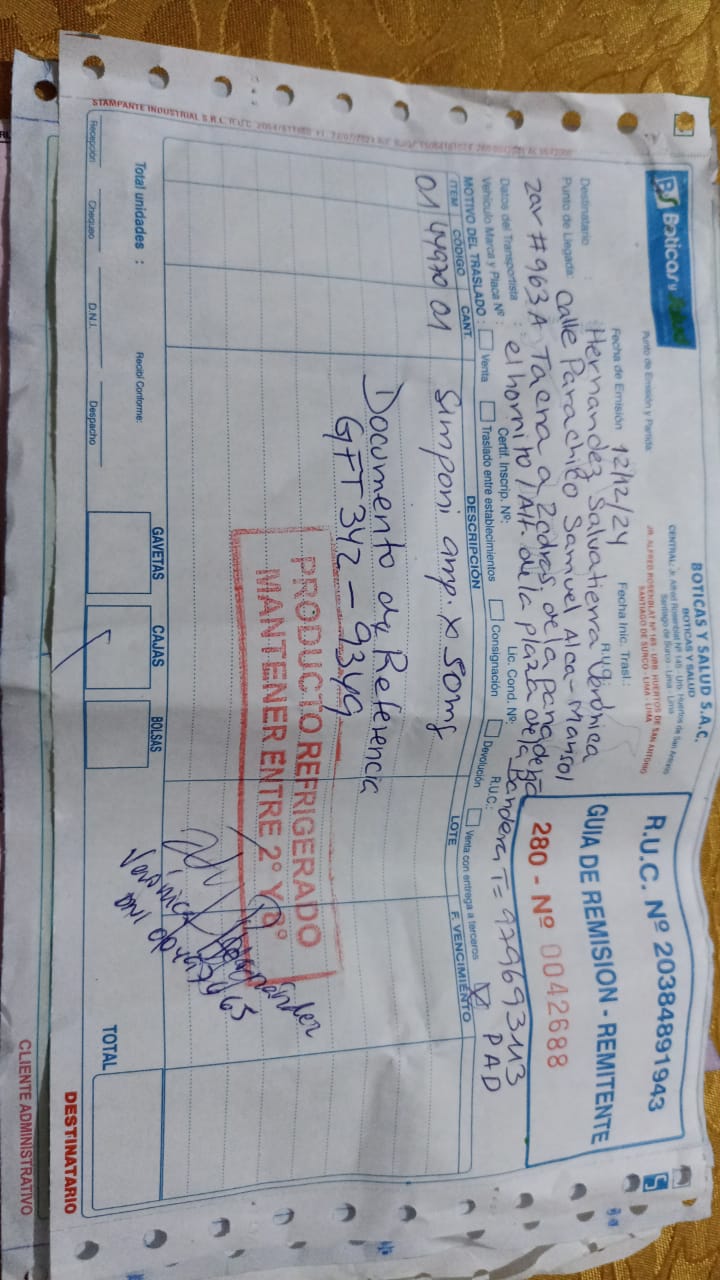 BS Boticas y Salud
BOTICAS Y SALUD S.A.C.
BOTICAS Y SALUD
CENTRAL: Jr. Alfred Rosenblat Nº 145 - Urb. Huertos de San Antonio
Santiago de Surco - Lima - Lima
Punto de Emisión y Partida:
JR. ALFRED ROSENBLAT Nº 165 - URB. HUERTOS DE SAN ANTONIO
SANTIAGO DE SURCO - LIMA - LIMA
R.U.C. Nº 20384891943
GUIA DE REMISION - REMITENTE
280 - Nº 0042688
Fecha de Emisión 12/12/24 Fecha Inic. Trasl.:
Destinatario : Hernandez Salvatierra Verónica R.U.C.
Punto de Llegada: Calle Parachico Samuel Alca-Marisol
zar #963A Tacna a 2cdras. de la panadería
Datos del Transportista : el hornito / Alt. de la plaza de la Bandera, T= 979693113
Vehículo Marca y Placa Nº : Certif. Inscrip. Nº: Lic. Cond. Nº: R.U.C.: PAD
MOTIVO DEL TRASLADO : Venta Traslado entre establecimientos Consignación Devolución Venta con entrega a terceros
ITEM CÓDIGO CANT. DESCRIPCIÓN LOTE F. VENCIMIENTO
01 44970 01 Simponi amp. x 50mg
Documento de Referencia
GFT342-9349
PRODUCTO REFRIGERADO
MANTENER ENTRE 2º Y 8º
Verónica Hernández
DNI
Total unidades : Recibí Conforme: GAVETAS CAJAS BOLSAS TOTAL
Recepción Chequeo D.N.I. Despacho
DESTINATARIO
CLIENTE ADMINISTRATIVO
STAMPANTE INDUSTRIAL S.R.L. R.U.C.